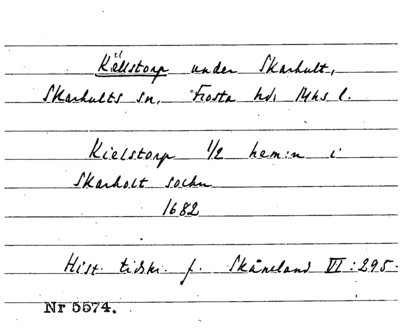 Källstorp under Skarhult,
Skarhults sn, Frosta hd, Mhs l.
Kielstorp 1/2 hem:n i
Skarholt sochn
1682
Hist. tidskr. f. Skåneland VI:295.
Nr 5574.